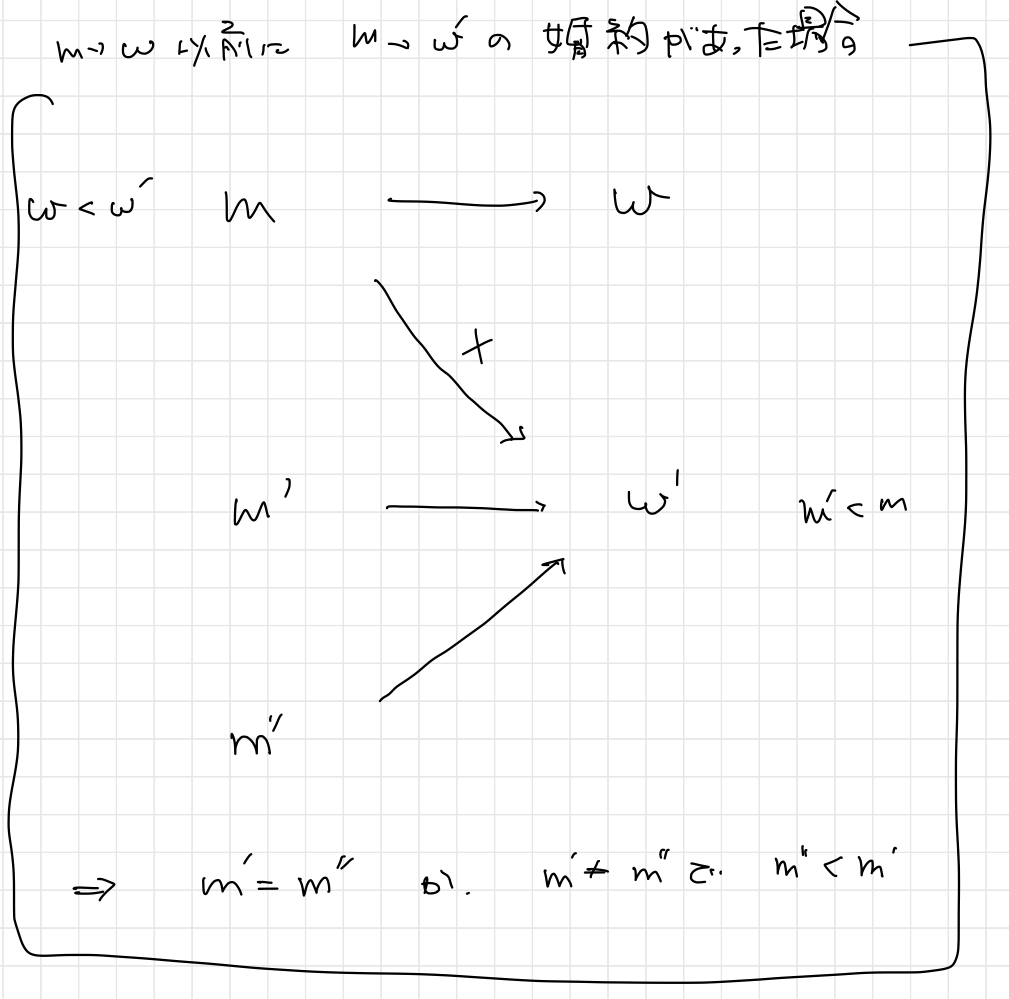 m→w 以前に m→w′の婚約があった場合
w<w′ m → w
×
m′ → w′ m′<m
m″
⇒ m′=m″ か. m′≠m″で. m″<m′